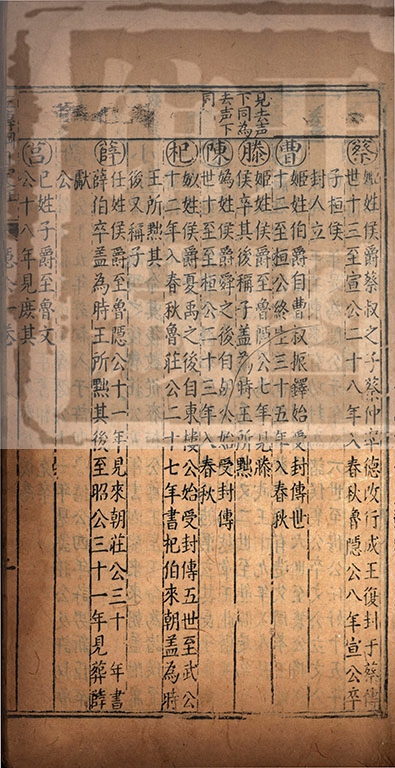 見去声
下同為
去声下
同
蔡
姬姓侯爵蔡叔之子蔡仲率德改行成王復封于蔡傳
世十三至宣公二十八年入春秋魯隱公八年宣公卒
子桓侯
封人立
曹
姬姓伯爵自曹叔振鐸始受封傳世
十二至桓公終生三十五年入春秋
滕
姬姓侯爵魯隱公七年見滕
侯卒其後稱子蓋為時王所黜
陳
媯姓侯爵舜之後自胡公始受封傳
世十至桓公二十三年入春秋
杞
姒姓侯爵夏禹之後自東樓公始受封傳五世至武公
十二年入春秋魯莊公二十七年書杞伯來朝蓋為時
王所黜其
後又稱子
薛
任姓侯爵至魯隱公十一年見來朝莊公三十 年書
薛伯卒蓋為時王所黜其後至昭公三十一年見葬薛
獻
公
莒
己姓子爵至魯文
公十八年見庶其